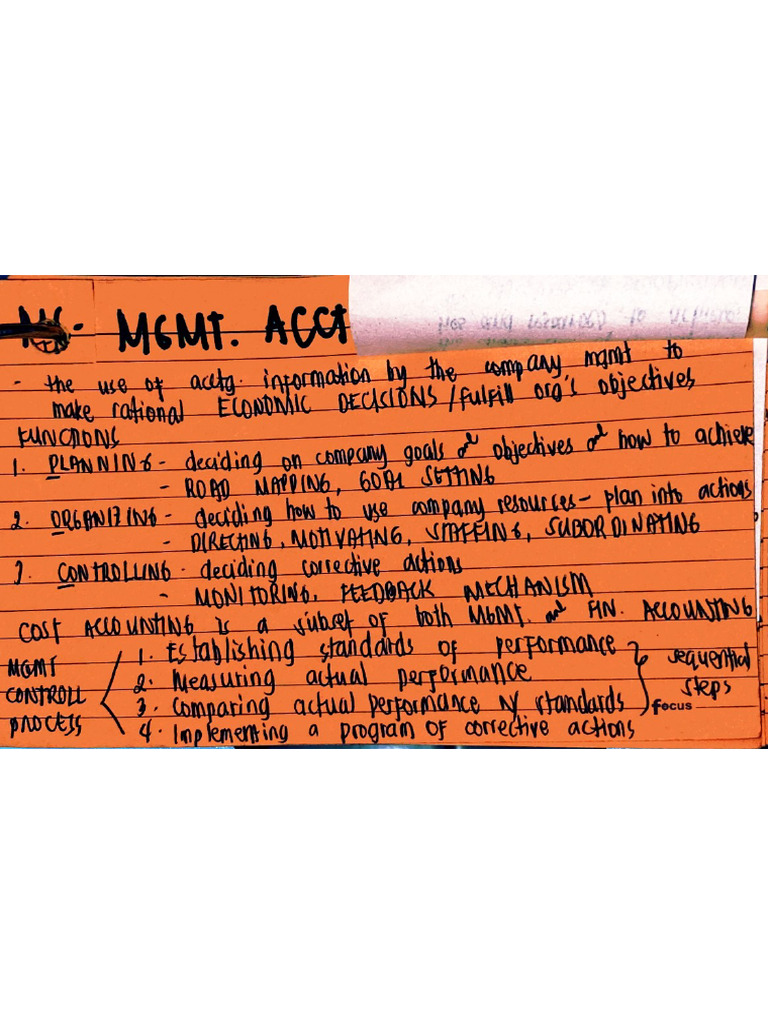 MS - MGMT. ACCT
- the use of acctg. information by the company mgmt to
make rational ECONOMIC DECISIONS / fulfill org's objectives
FUNCTIONS
1. PLANNING - deciding on company goals and objectives and how to achieve
- ROAD MAPPING, GOAL SETTING
2. ORGANIZING - deciding how to use company resources - plan into actions
- DIRECTING, MOTIVATING, STAFFING, SUBORDINATING
3. CONTROLLING - deciding corrective actions
- MONITORING, FEEDBACK MECHANISM
COST ACCOUNTING is a subset of both MGMT. and FIN. ACCOUNTING
MGMT CONTROLL PROCESS
1. Establishing standards of performance
2. Measuring actual performance
3. Comparing actual performance w/ standards
4. Implementing a program of corrective actions
sequential
steps
Focus